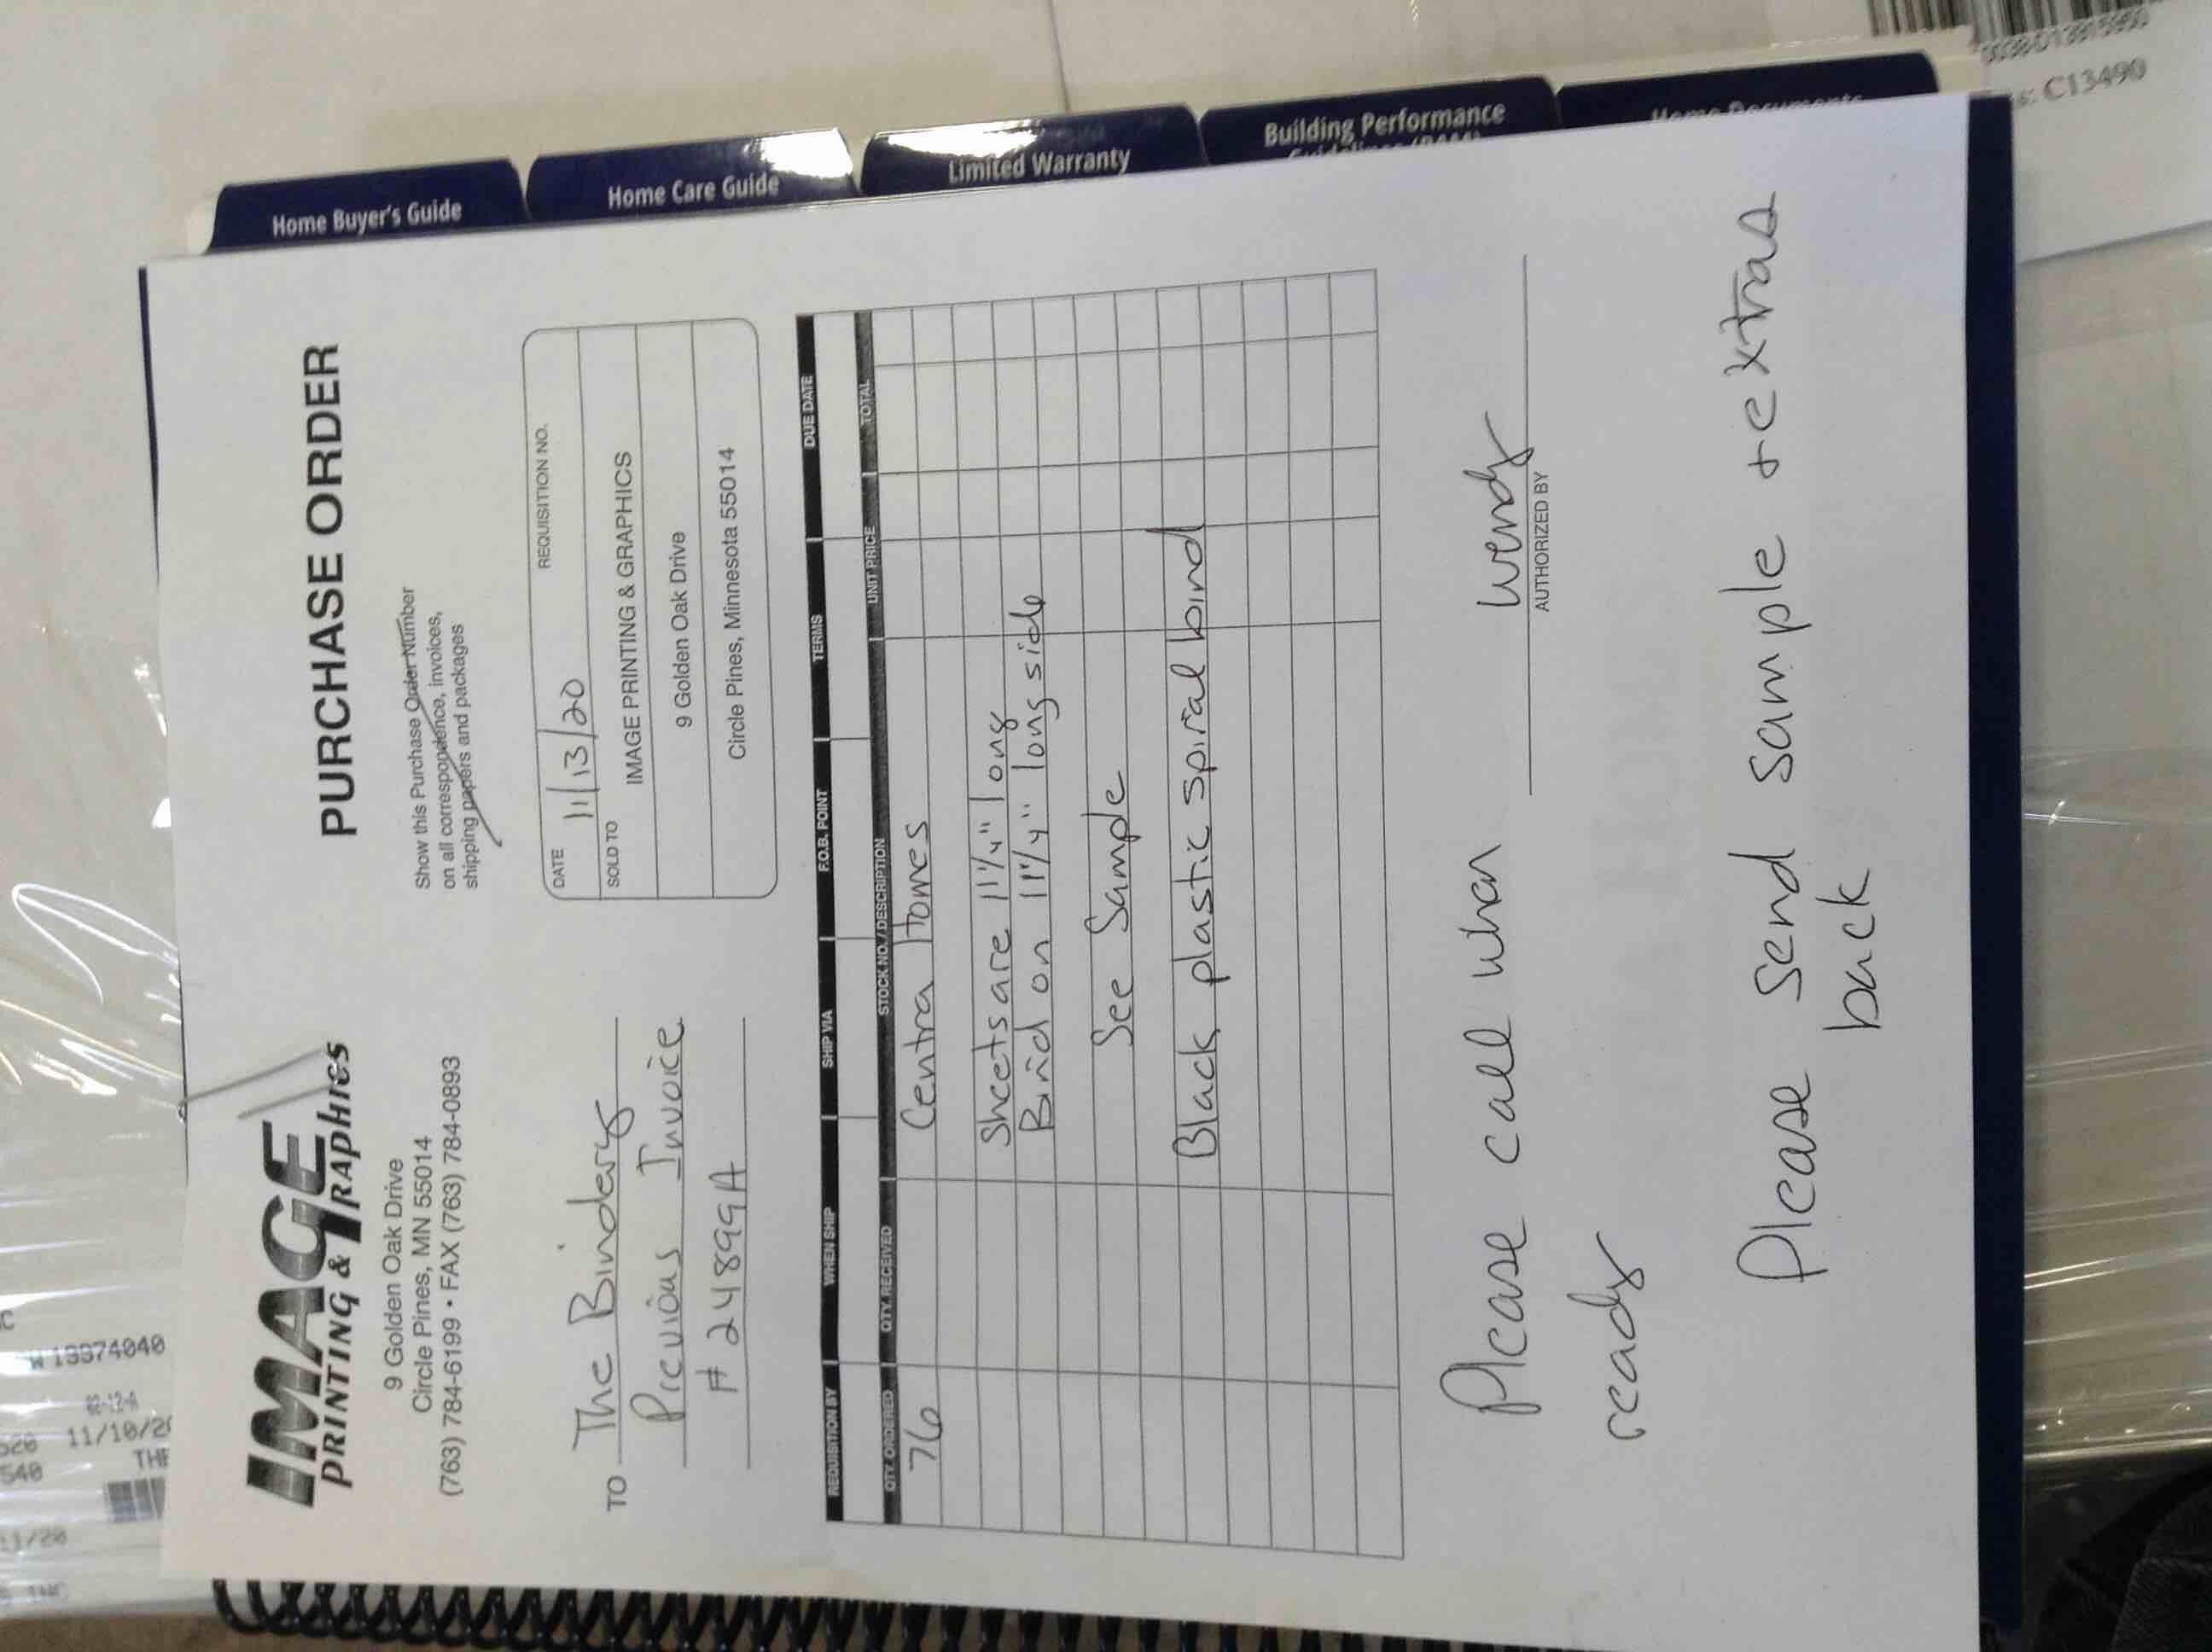 Home Buyer's Guide
Home Care Guide
Limited Warranty
Building Performance
Home Documents
C13490
W 13374040
11/10/20
IMAGE
PRINTING & GRAPHICS
9 Golden Oak Drive
Circle Pines, MN 55014
(763) 784-6199 • FAX (763) 784-0893
PURCHASE ORDER
Show this Purchase Order Number
on all correspondence, invoices,
shipping papers and packages
TO The Bindery
Previous Invoice
# 24899A
DATE 11/13/20 REQUISITION NO.
SOLD TO
IMAGE PRINTING & GRAPHICS
9 Golden Oak Drive
Circle Pines, Minnesota 55014
REQUISITION BY WHEN SHIP SHIP VIA F.O.B. POINT TERMS DUE DATE
QTY. ORDERED QTY. RECEIVED STOCK NO./DESCRIPTION UNIT PRICE TOTAL
76 Centra Homes
Sheets are 11 1/4" long
Bind on 11 1/4" long side
See Sample
Black plastic spiral bind
Please call when
ready
Wendy
AUTHORIZED BY
Please send sample + extras
back